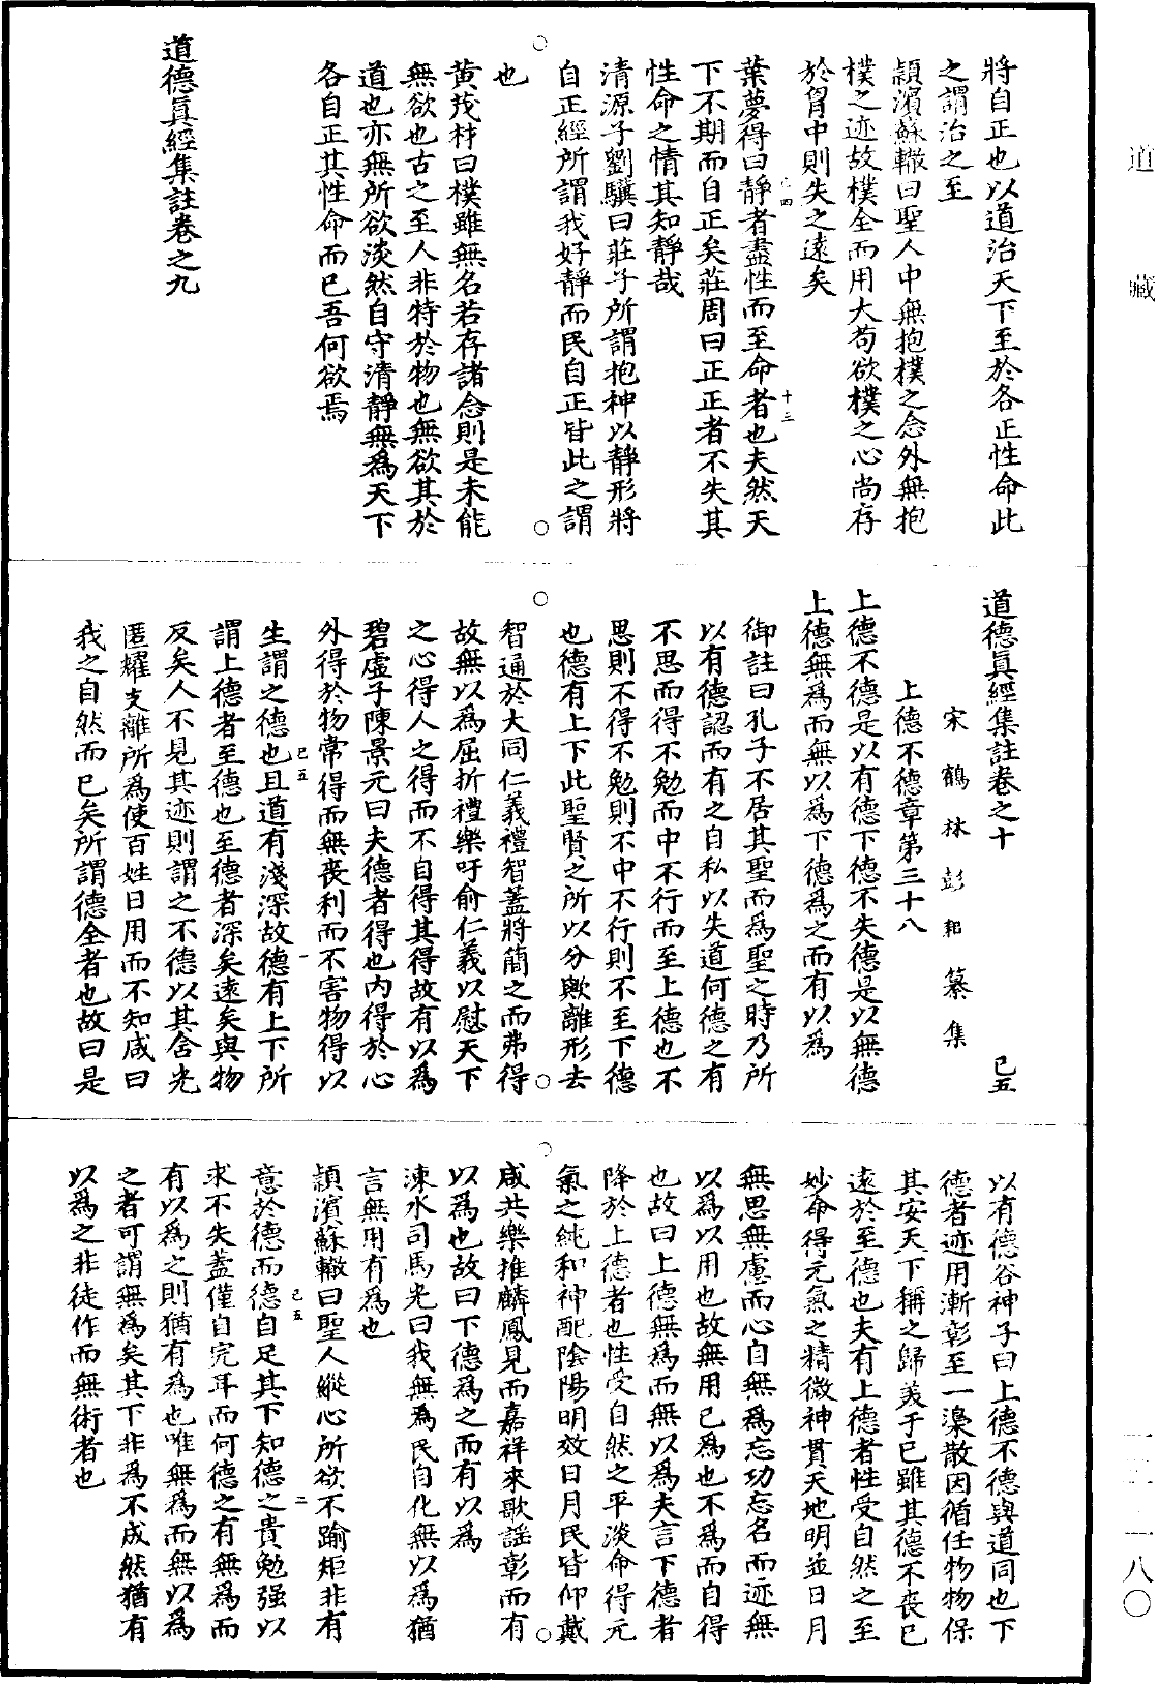 道藏
一三—一八〇
將自正也以道治天下至於各正性命此
之謂治之至
頴濱蘇轍曰聖人中無抱樸之念外無抱
樸之迹故樸全而用大苟欲樸之心尚存
於胷中則失之遠矣
葉夢得曰靜者盡性而至命者也夫然天
下不期而自正矣莊周曰正正者不失其
性命之情其知靜哉
清源子劉驥曰莊子所謂抱神以靜形將
自正經所謂我好靜而民自正皆此之謂
也
黃茂材曰樸雖無名若存諸念則是未能
無欲也古之至人非特於物也無欲其於
道也亦無所欲淡然自守清靜無爲天下
各自正其性命而已吾何欲焉
道德眞經集註卷之九
道德眞經集註卷之十 己五
宋鶴林彭耜纂集
上德不德章第三十八
上德不德是以有德下德不失德是以無德
上德無爲而無以爲下德爲之而有以爲
御註曰孔子不居其聖而爲聖之時乃所
以有德認而有之自私以失道何德之有
不思而得不勉而中不行而至上德也不
思則不得不勉則不中不行則不至下德
也德有上下此聖賢之所以分歟離形去
智通於大同仁義禮智蓋將簡之而弗得
故無以爲屈折禮樂吁俞仁義以慰天下
之心得人之得而不自得其得故有以爲
碧虛子陳景元曰夫德者得也内得於心
外得於物常得而無喪利而不害物得以
生謂之德也且道有淺深故德有上下所
謂上德者至德也至德者深矣遠矣與物
反矣人不見其迹則謂之不德以其含光
匿耀支離所爲使百姓日用而不知咸曰
我之自然而已矣所謂德全者也故曰是
以有德谷神子曰上德不德與道同也下
德者迹用漸彰至一澆散因循任物物保
其安天下稱之歸美于已雖其德不喪已
遠於至德也夫有上德者性受自然之至
妙命得元氣之精微神貫天地明並日月
無思無慮而心自無爲忘功忘名而迹無
以爲以用也故無用已爲也不爲而自得
也故曰上德無爲而無以爲夫言下德者
降於上德者也性受自然之平淡命得元
氣之純和神配陰陽明效日月民皆仰戴
咸共樂推麟鳳見而嘉祥來歌謡彰而有
以爲也故曰下德爲之而有以爲
涑水司馬光曰我無爲民自化無以爲猶
言無用有爲也
頴濱蘇轍曰聖人縱心所欲不踰矩非有
意於德而德自足其下知德之貴勉强以
求不失蓋僅自完耳而何德之有無爲而
有以爲之則猶有爲也唯無爲而無以爲
之者可謂無爲矣其下非爲不成然猶有
以爲之非徒作而無術者也